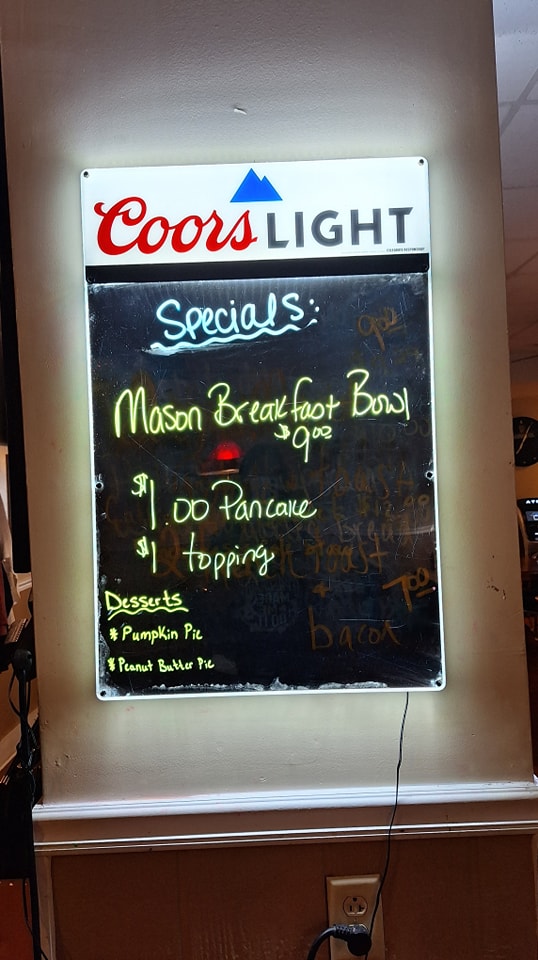 Coors LIGHT
Specials:
Mason Breakfast Bowl
$9.00
$1.00 Pancake
$1 topping
Desserts
* Pumpkin Pie
* Peanut Butter Pie
9.00
toast
+
7.00
bacon